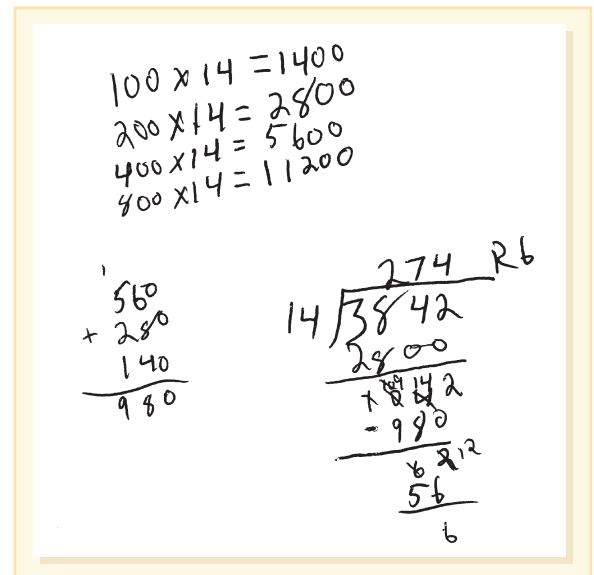 100 x 14 = 1400
200 x 14 = 2800
400 x 14 = 5600
800 x 14 = 11200
1
560
+ 280
140
980
274 R6
14 3842
2800
1042
- 980
62
56
6